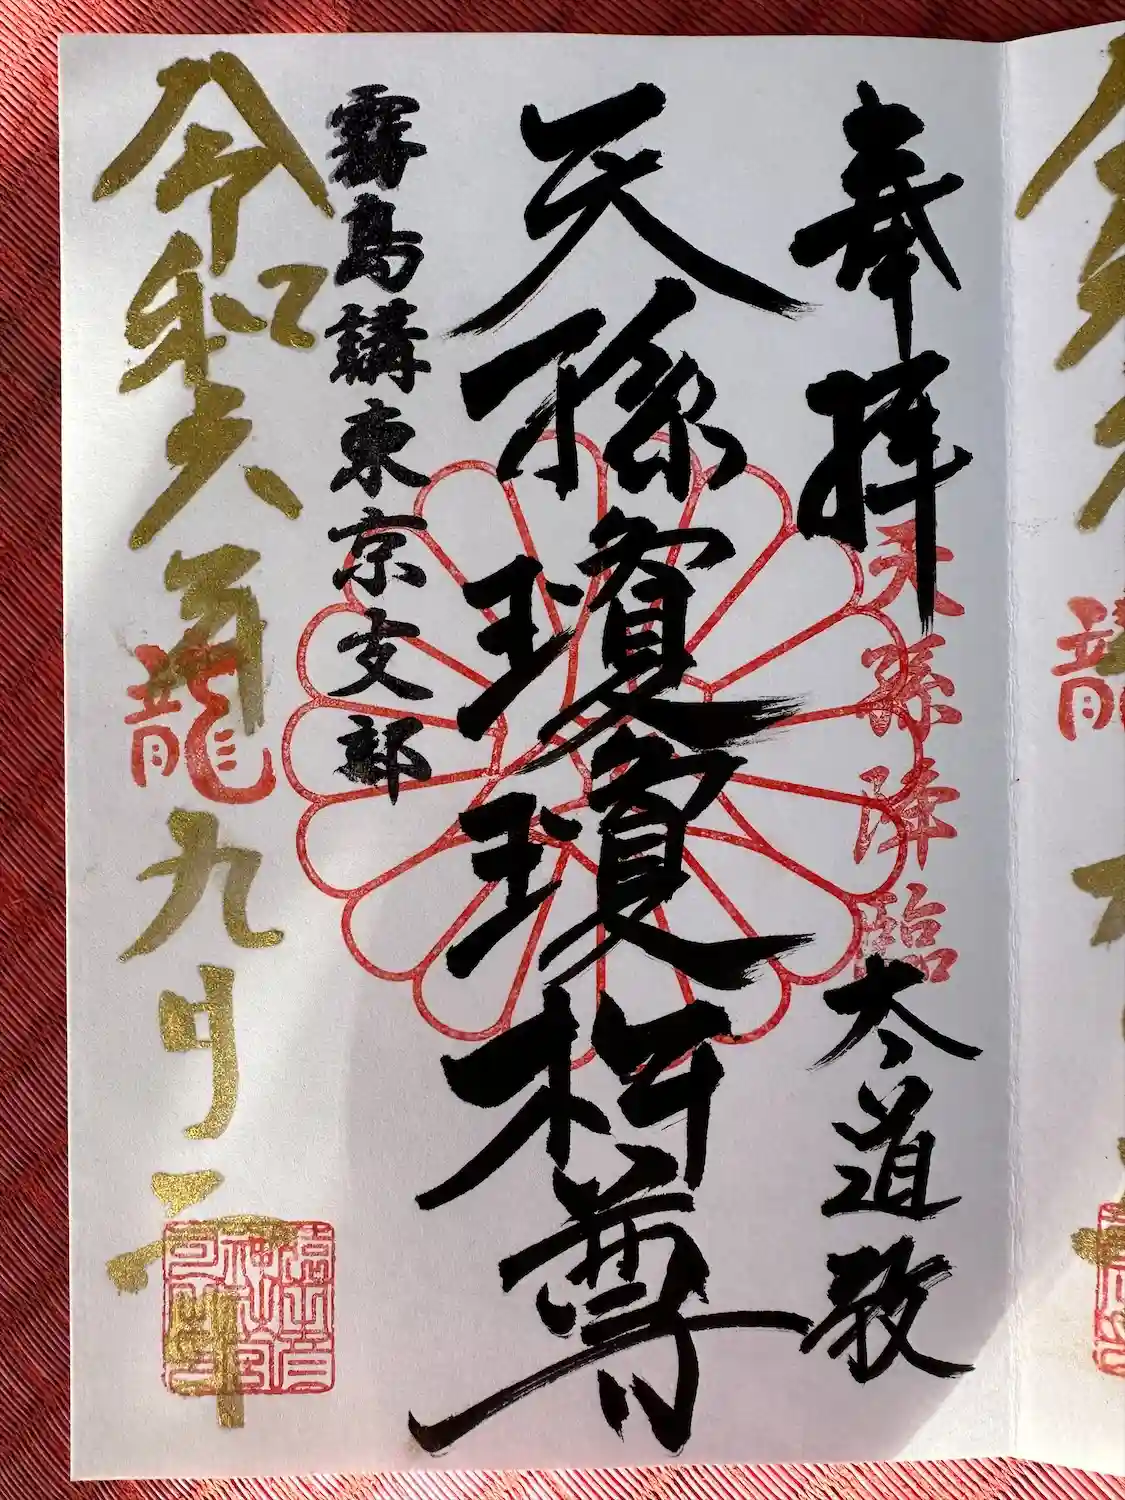 奉拝
天孫降臨
太道
天孫瓊瓊杵尊
霧島講東京支部
令和六年九月
龍